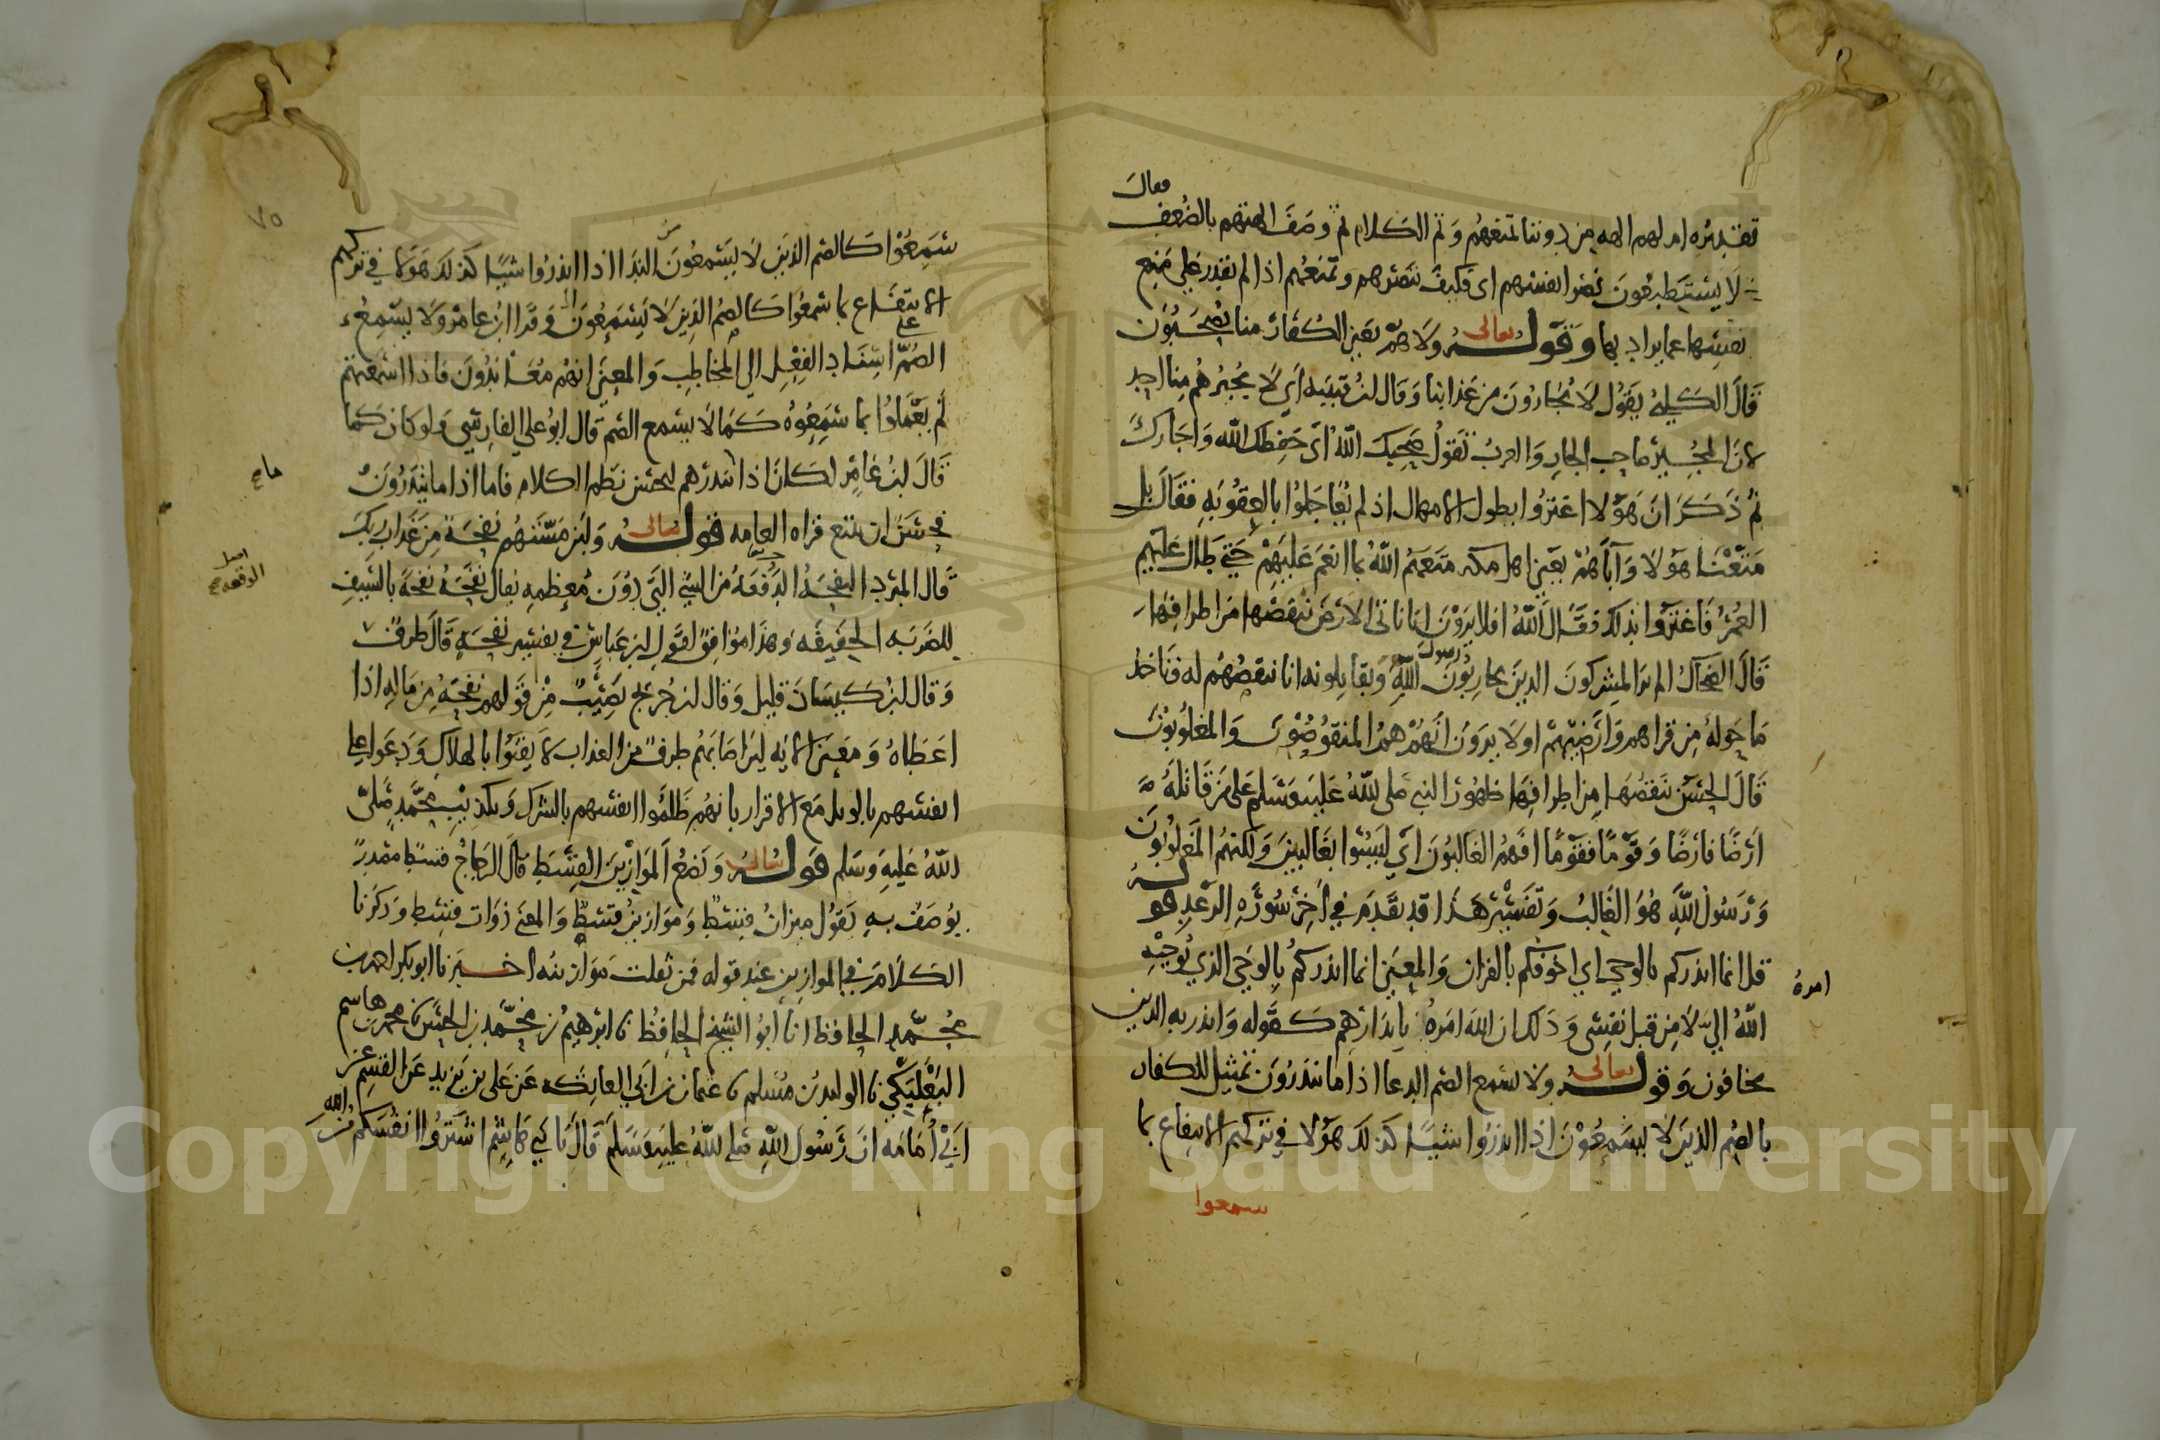 فقال
تقديره ام لهم الهة من دوننا تمنعهم وتم الكلام ثم وصف الهتهم بالضعف
لا يستطيعون نصر انفسهم اى فكيف تنصرهم وتمنعهم اذا لم تقدر على منع
نفسها عما يراد بها وقوله تعالى ولا هم يعنى الكفار منا يصحبون
قال الكلبى يقول لا يجارون من عذابنا وقال ابن قتيبه اى لا يجيرهم منا احد
لان المجير صاحب الجار والعرب تقول صحبك الله اى حفظك الله واجارك
ثم ذكر ان هؤلا اغتروا بطول الامهال اذ لم يعاجلوا بالعقوبه فقال بل
متعنا هؤلا وآبآهم يعنى اهل مكه متعهم الله بما انعم عليهم حتى طال عليهم
العمر فاغتروا بذلك فقال الله افلا يرون انا ناتى الارض ننقصها من اطرافها
قال الضحاك الم ير المشركون الذين يحاربون رسول الله ويقاتلونه انا ننقصهم له فناخذ
ما حوله من قراهم وأرضيهم اولا يرون انهم هم المنقوصون والمغلوبون
قال الحسن ننقصها من اطرافها ظهور النبى صلى الله عليه وسلم على من قاتله
ارضا فارضا وقوما فقوما افهم الغالبون اى ليسوا بغالبين ولكنهم المغلوبون
ورسول الله هو الغالب وتفسير هذا قد تقدم فى آخر سوره الرعد قوله
قل انما انذركم بالوحى اى اخوفكم بالقران والمعنى انما انذركم بالوحى الذى يوحيه
الله الى لا من قبل نفسى وذلك ان الله امره بانذارهم كقوله وانذر به الذين
امره
يخافون وقوله تعالى ولا يسمع الصم الدعا اذا ما ينذرون تمثيل للكفار
بالصم الذين لا يسمعون اذا انذروا شيا كذلك هؤلا فى تركهم الانتفاع بما
سمعوا
٧٥
سمعوا كالصم الذين لا يسمعون الندا اذا انذروا شيا كذلك هؤلا فى تركهم
الانتفاع بما سمعوا كالصم الذين لا يسمعون وقرا ابن عامر ولا تسمع
الصم على اسناد الفعل الى المخاطب والمعنى انهم معاندون فاذا اسمعتهم
لم يعملوا بما سمعوه كما لا يسمع الصم قال ابو على الفارسى ولو كان كما
قال ابن عامر لكان اذا تنذرهم ليحسن نظم الكلام فاما اذا ما ينذرون
فحسن ان يتبع قراه العامه قوله تعالى ولئن مستهم نفحة من عذاب ربك
قال المبرد النفحة الدفعة من الشئ التى دون معظمه يقال نفحه نفحة بالسيف
اصل
للضربه الخفيفه وهذا موافق لقول ابن عباس فى تفسير نفحة قال طرف
وقال ابن كيسان قليل وقال ابن جريج نصيب من قولهم نفحه من ماله اذا
اعطاه ومعنى الايه لئن اصابهم طرف من العذاب لايقنوا بالهلاك ودعوا على
انفسهم بالويل مع الاقرار بانهم ظلموا انفسهم بالشرك وتكذيب محمد صلى
الله عليه وسلم قوله تعالى ونضع الموازين القسط قال الزجاج قسط مصدر
يوصف به تقول ميزان قسط وموازين قسط والمعنى ذوات قسط وذكرنا
الكلام فى الموازين عند قوله فمن ثقلت موازينه اخبرنا ابو بكر احمد بن
محمد الحافظ انا ابو الشيخ الحافظ نا ابرهيم بن محمد بن الحسن نا محمد بن هاشم
البعلبكى نا الوليد بن مسلم نا عثمان بن ابى العاتكه عن على بن يزيد عن القسم عن
ابى أمامه ان رسول الله صلى الله عليه وسلم قال يا بنى هاشم اشتروا انفسكم من الله
Copyright © King Saud University